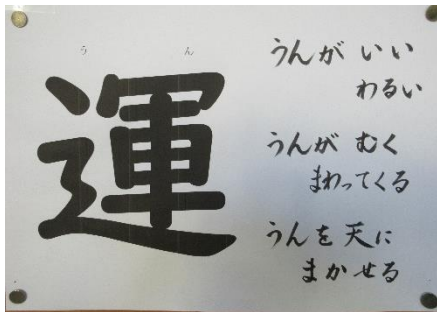 うん
運
うんが いい
わるい
うんが むく
まわってくる
うんを 天に
まかせる